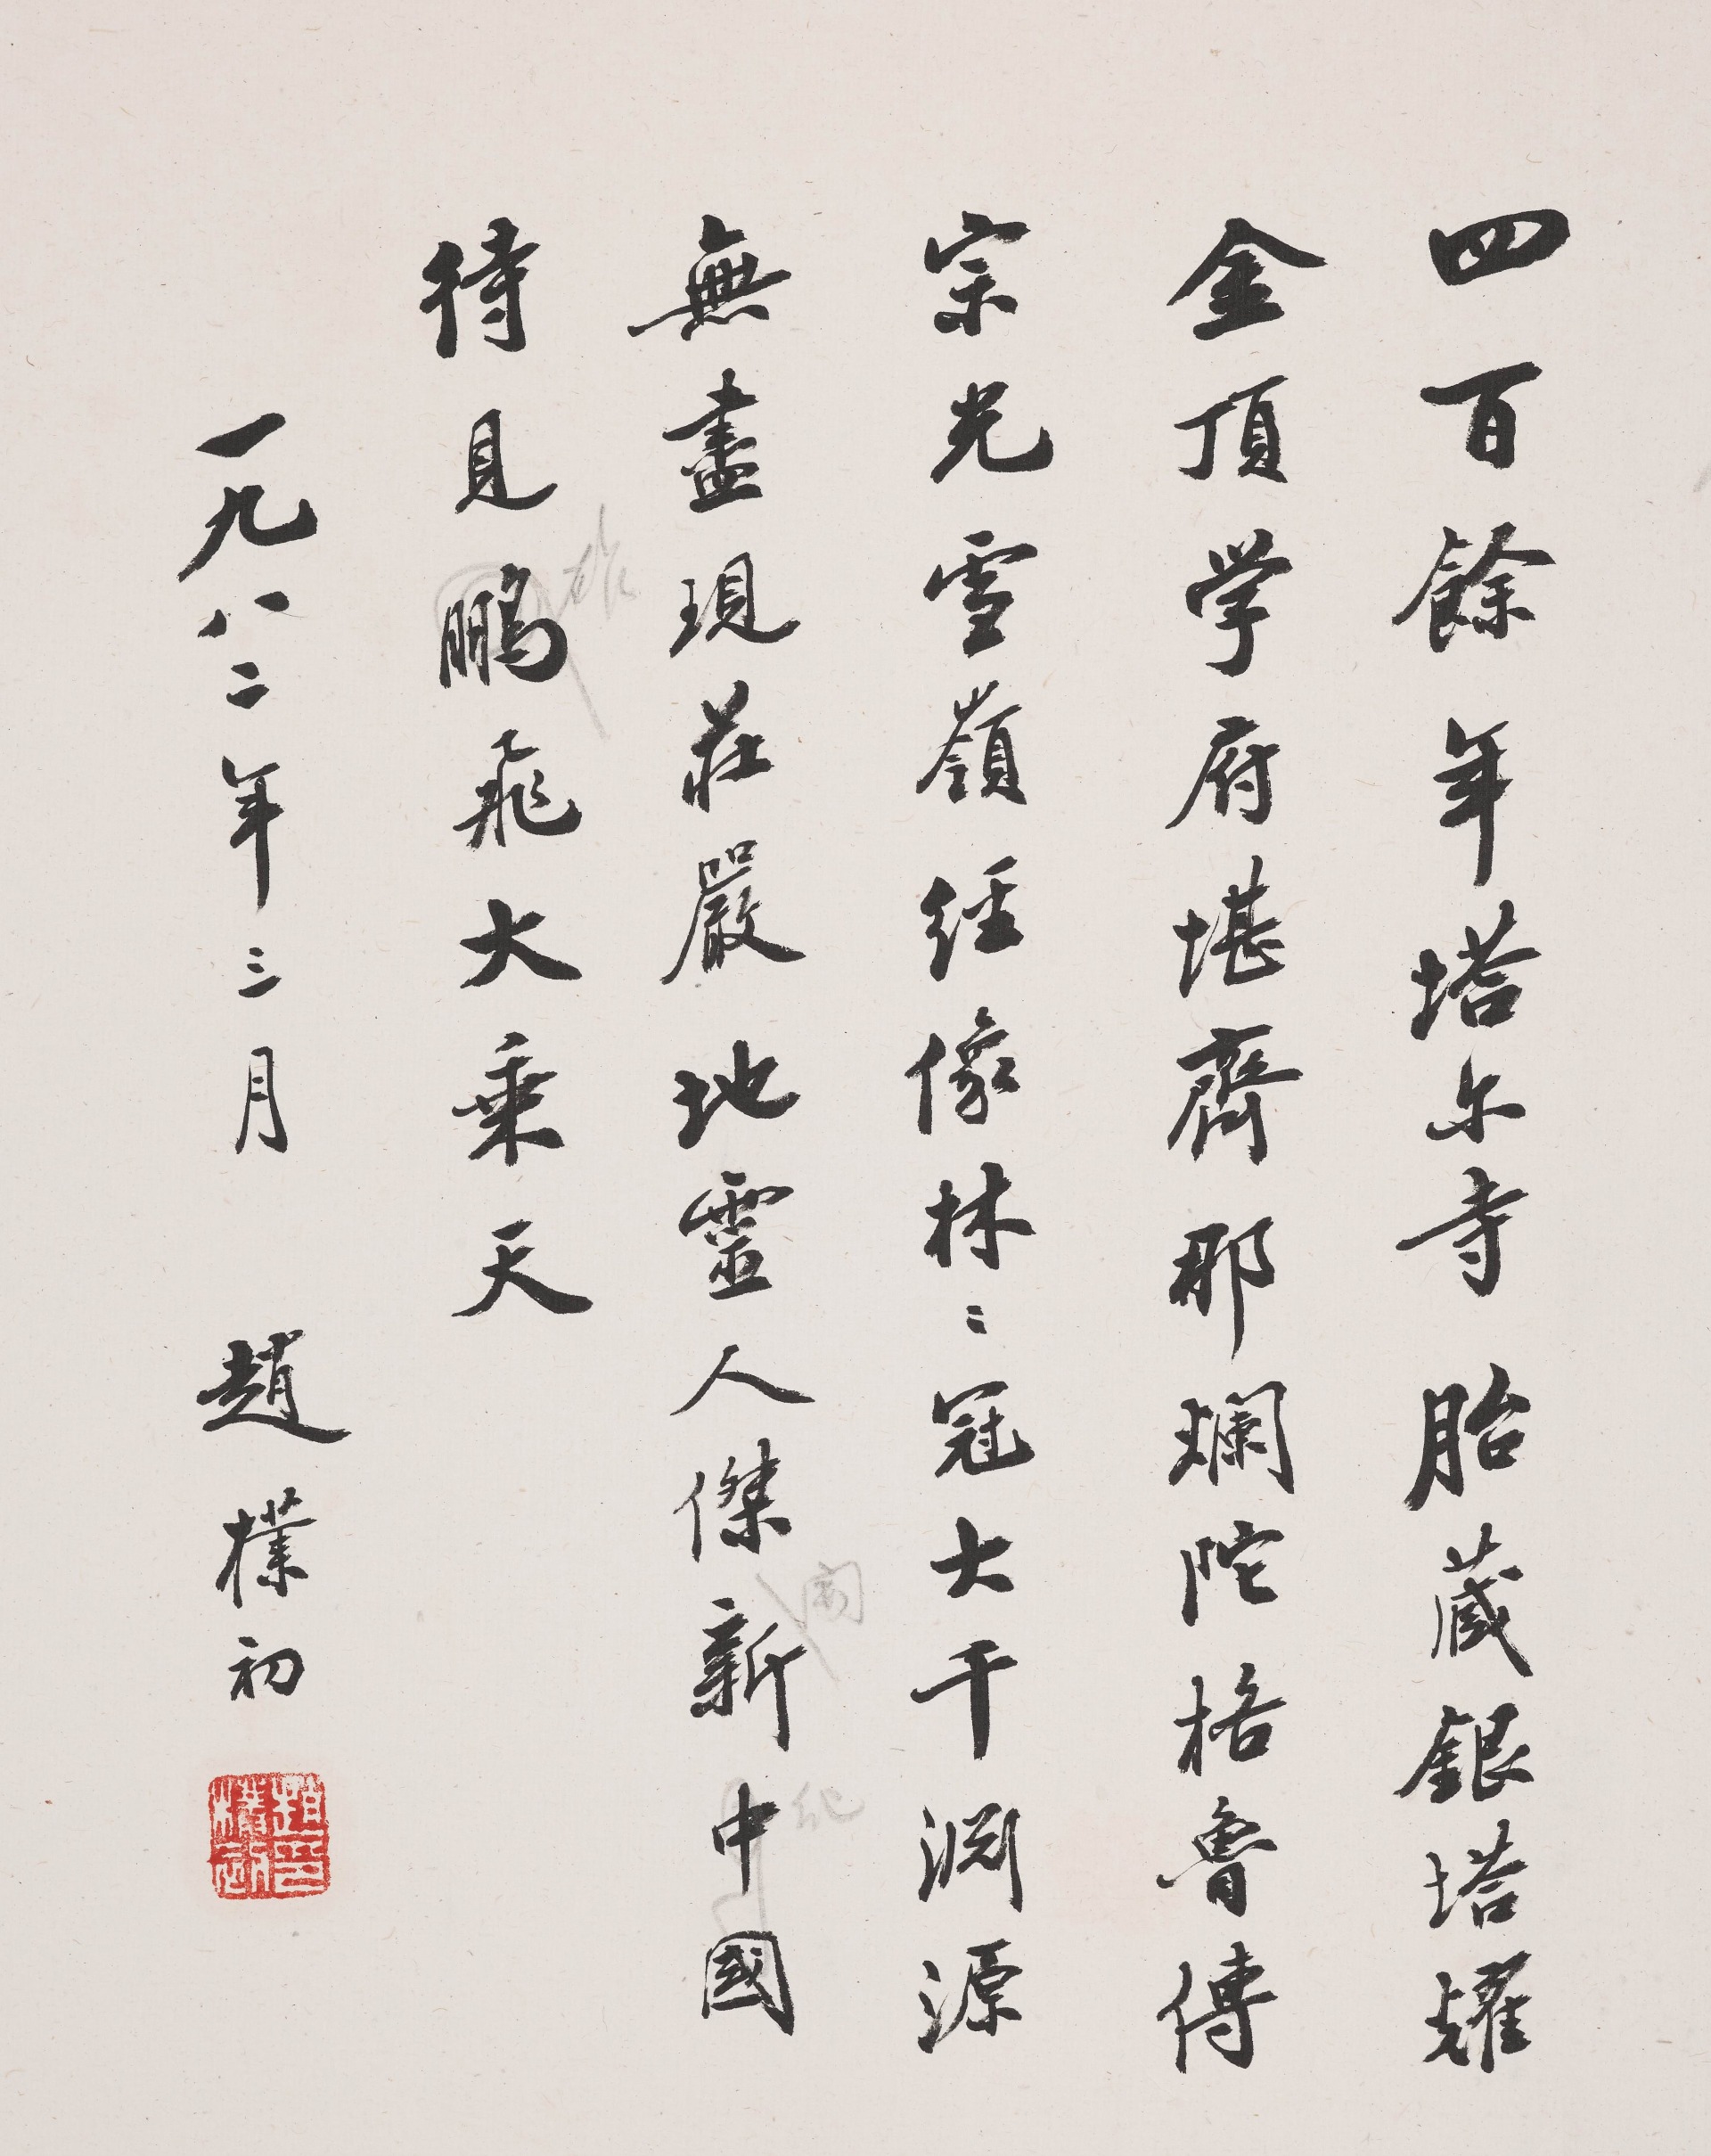 四百餘年塔尔寺胎蔵銀塔耀
金頂学府堪齊那爛陀格魯傳
宗光雪嶺经像林〻冠大千渊源
無盡現莊嚴地靈人傑新中國
待見鵬飛大乗天
一九八二年三月 趙樸初
趙樸初印